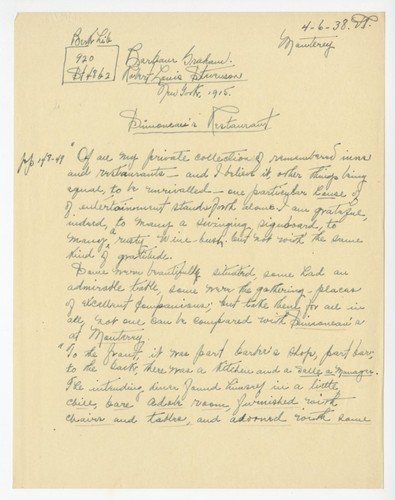 4-6-38. H.
Berk Lib
Monterey
920
St4862
Balfour Graham.
Robert Louis Stevenson
New York, 1915.
Simoneau's Restaurant
pp 147-49
"Of all my private collection of remembered inns
and restaurants — and I believe it, other things being
equal, to be unrivalled — one particular house of
entertainment stands forth alone. I am grateful,
indeed, to many a swinging signboard, to
many a rusty wine-bush, but not with the same
kind of gratitude.
Some were beautifully situated, some had an
admirable table, some were the gathering-places
of excellent companions; but take them for all in
all, not one can be compared with Simoneau's
at Monterey.
"To the front, it was part barber's shop, part bar;
to the back, there was a kitchen and a salle a manger.
The intending diner found himself in a little,
chill, bare adobe room furnished with
chairs and tables, and adorned with some